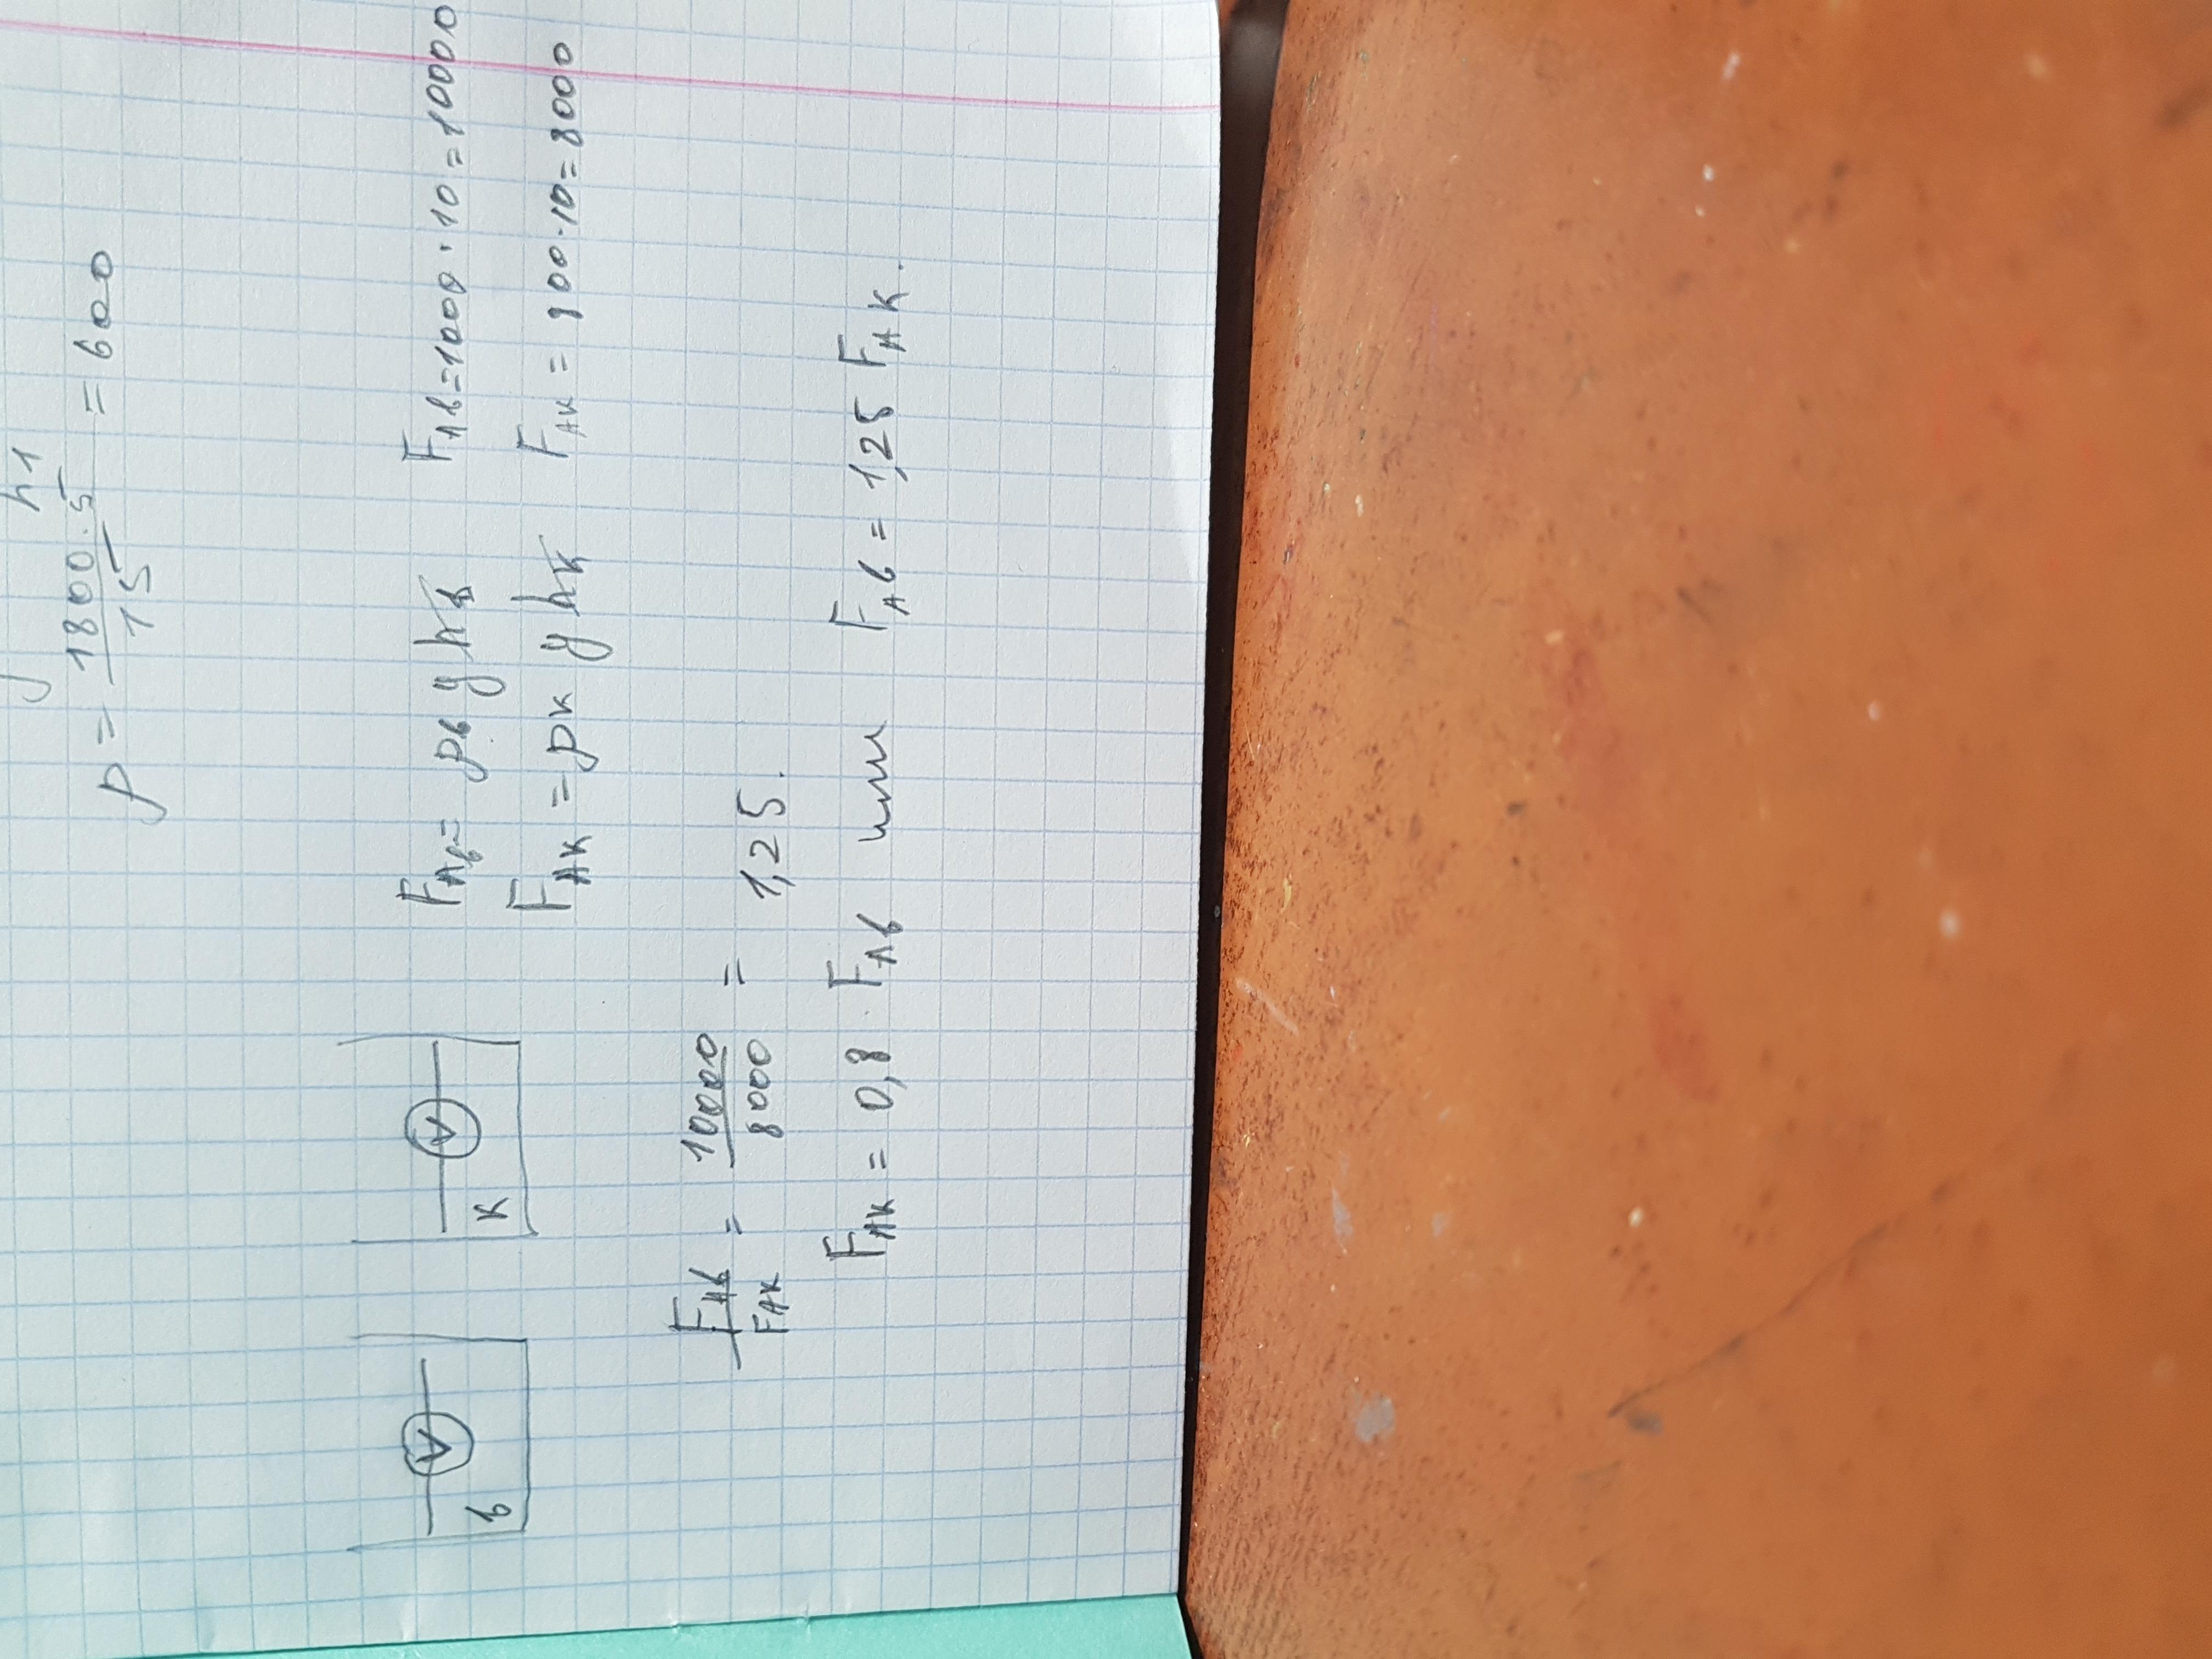 h1
p = 1800·5 / 15 = 600
FAв = pв g hв FAв = 1000·10 = 10000
FAк = pк g hк FAк = 800·10 = 8000
V V
в к
FAв / FAк = 10000 / 8000 = 1,25.
FAк = 0,8 · FAв или FAв = 1,25 FAк.